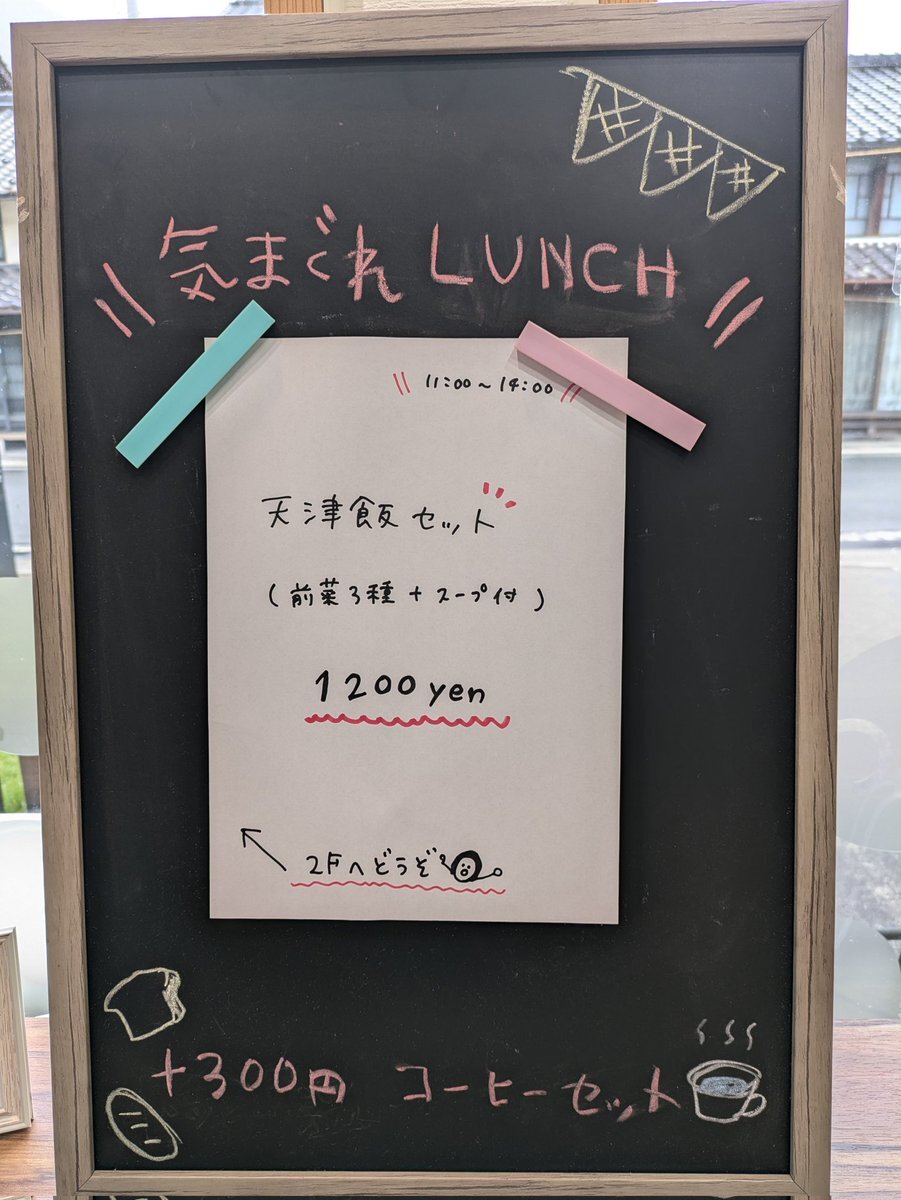 気まぐれ LUNCH
11:00～14:00
天津飯セット
(前菜3種+スープ付)
1200yen
2Fへどうぞ
+300円 コーヒーセット